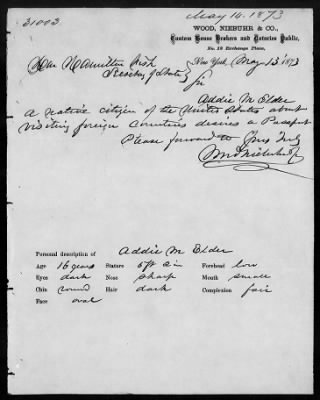 31003
May 14. 1873
WOOD, NIEBUHR & CO.,
Custom House Brokers and Notaries Public,
No. 18 Exchange Place,
New York, May 13 1873
Hon Hamilton Fish
Secretary of State
Sir
Addie M Elder
a native citizen of the United States about
visiting foreign Countries desires a Passport
Please forward to Yours Truly
Personal description of Addie M Elder
Age 16 years Stature 5 ft 2 in Forehead low
Eyes dark Nose sharp Mouth small
Chin round Hair dark Complexion fair
Face oval